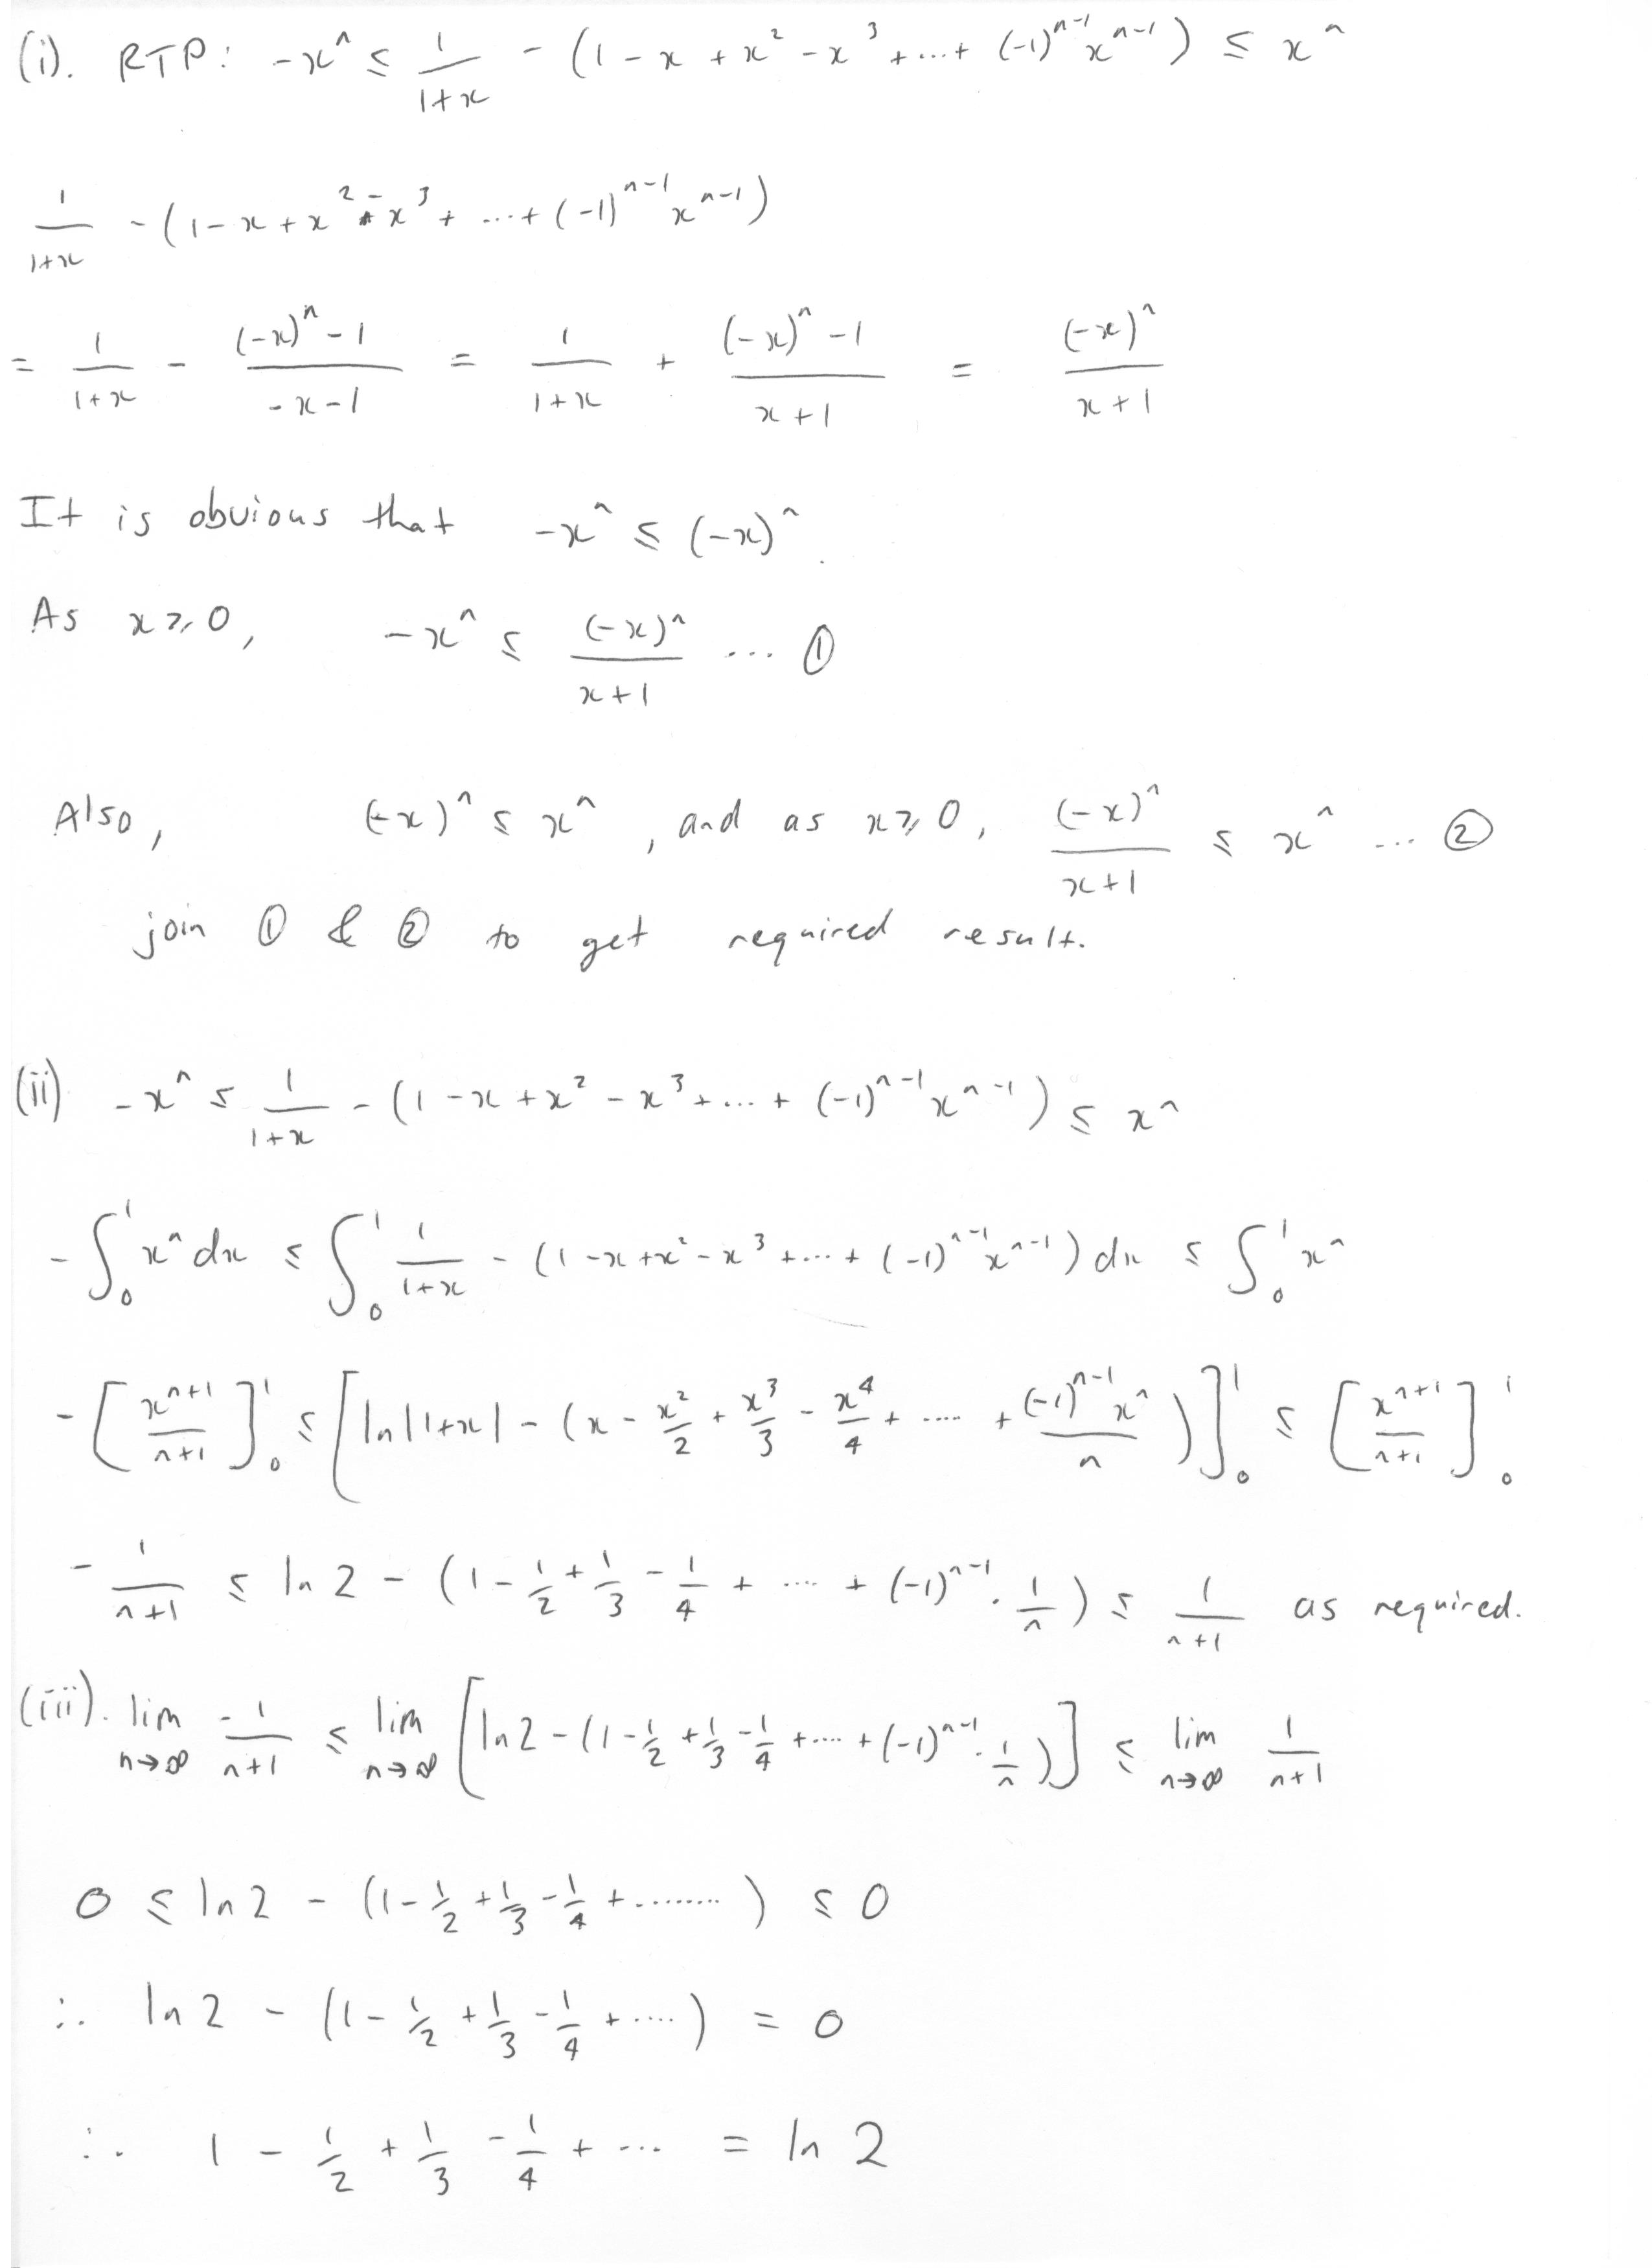 (i). RTP: -xⁿ ≤ 1/(1+x) - (1 - x + x² - x³ + ... + (-1)ⁿ⁻¹ xⁿ⁻¹) ≤ xⁿ
1/(1+x) - (1 - x + x² - x³ + ... + (-1)ⁿ⁻¹ xⁿ⁻¹)
= 1/(1+x) - ((-x)ⁿ - 1)/(-x-1) = 1/(1+x) + ((-x)ⁿ - 1)/(x+1) = (-x)ⁿ/(x+1)
It is obvious that -xⁿ ≤ (-x)ⁿ.
As x ≥ 0, -xⁿ ≤ (-x)ⁿ/(x+1) ... ①
Also, (-x)ⁿ ≤ xⁿ, and as x ≥ 0, (-x)ⁿ/(x+1) ≤ xⁿ ... ②
join ① & ② to get required result.
(ii) -xⁿ ≤ 1/(1+x) - (1 - x + x² - x³ + ... + (-1)ⁿ⁻¹ xⁿ⁻¹) ≤ xⁿ
-∫₀¹ xⁿ dx ≤ ∫₀¹ 1/(1+x) - (1 - x + x² - x³ + .... + (-1)ⁿ⁻¹ xⁿ⁻¹) dx ≤ ∫₀¹ xⁿ
-[xⁿ⁺¹/(n+1)]₀¹ ≤ [ln|1+x| - (x - x²/2 + x³/3 - x⁴/4 + ..... + (-1)ⁿ⁻¹ xⁿ/n)]₀¹ ≤ [xⁿ⁺¹/(n+1)]₀¹
-1/(n+1) ≤ ln 2 - (1 - 1/2 + 1/3 - 1/4 + .... + (-1)ⁿ⁻¹ . 1/n) ≤ 1/(n+1) as required.
(iii). lim n→∞ -1/(n+1) ≤ lim n→∞ [ln 2 - (1 - 1/2 + 1/3 - 1/4 + .... + (-1)ⁿ⁻¹ . 1/n)] ≤ lim n→∞ 1/(n+1)
0 ≤ ln 2 - (1 - 1/2 + 1/3 - 1/4 + ........) ≤ 0
∴ ln 2 - (1 - 1/2 + 1/3 - 1/4 + .....) = 0
∴ 1 - 1/2 + 1/3 - 1/4 + ... = ln 2